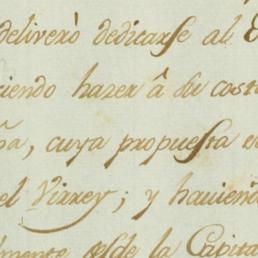 deliverò dedicarse al
ciendo hazer â su cost
ña, cuya propuesta
el Virrey; y haviend
lmente desde la Capita